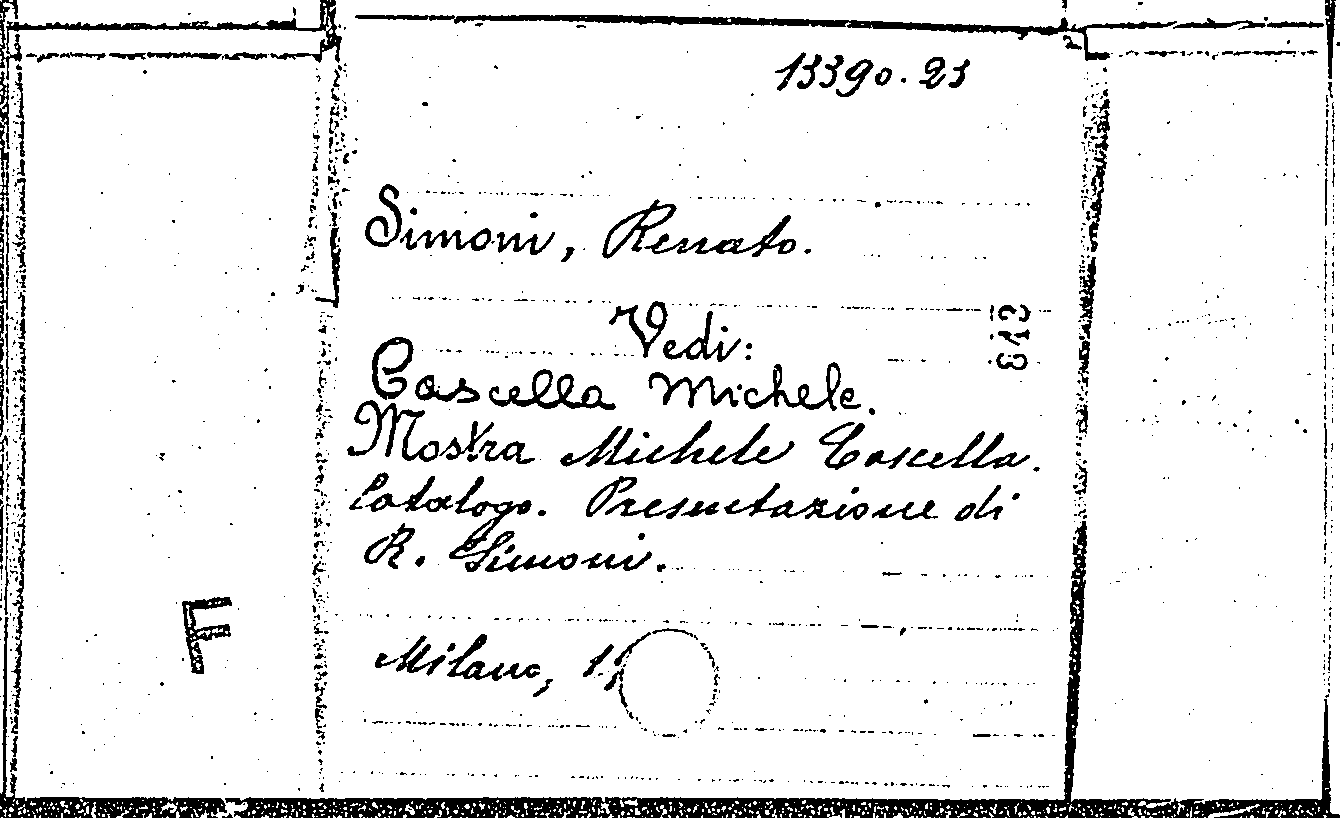 13390.23
Simoni, Renato.
Vedi:
Cascella Michele.
Mostra Michele Cascella.
Catalogo. Presentazione di
R. Simoni.
Milano,
F